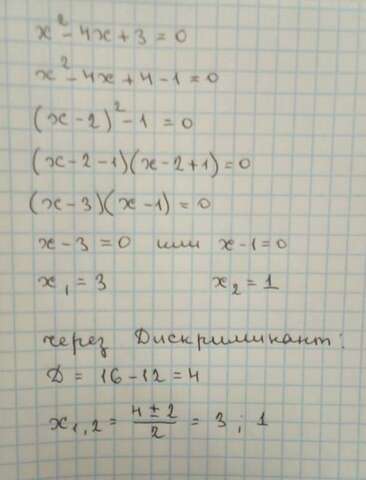 x² - 4x + 3 = 0
x² - 4x + 4 - 1 = 0
(x - 2)² - 1 = 0
(x - 2 - 1)(x - 2 + 1) = 0
(x - 3)(x - 1) = 0
x - 3 = 0 или x - 1 = 0
x₁ = 3 x₂ = 1
через Дискриминант:
D = 16 - 12 = 4
x₁,₂ = (4 ± 2)/2 = 3 ; 1